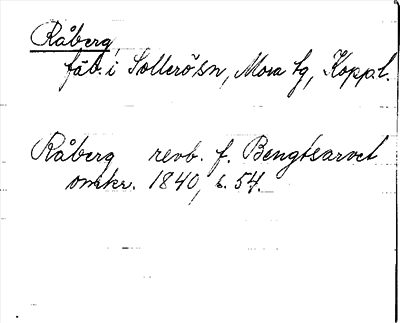 Råberg
fäb. i Sollerösn, Mora tg, Koppl.
Råberg revb. f. Bengtsarvet
omkr. 1840, s. 54.